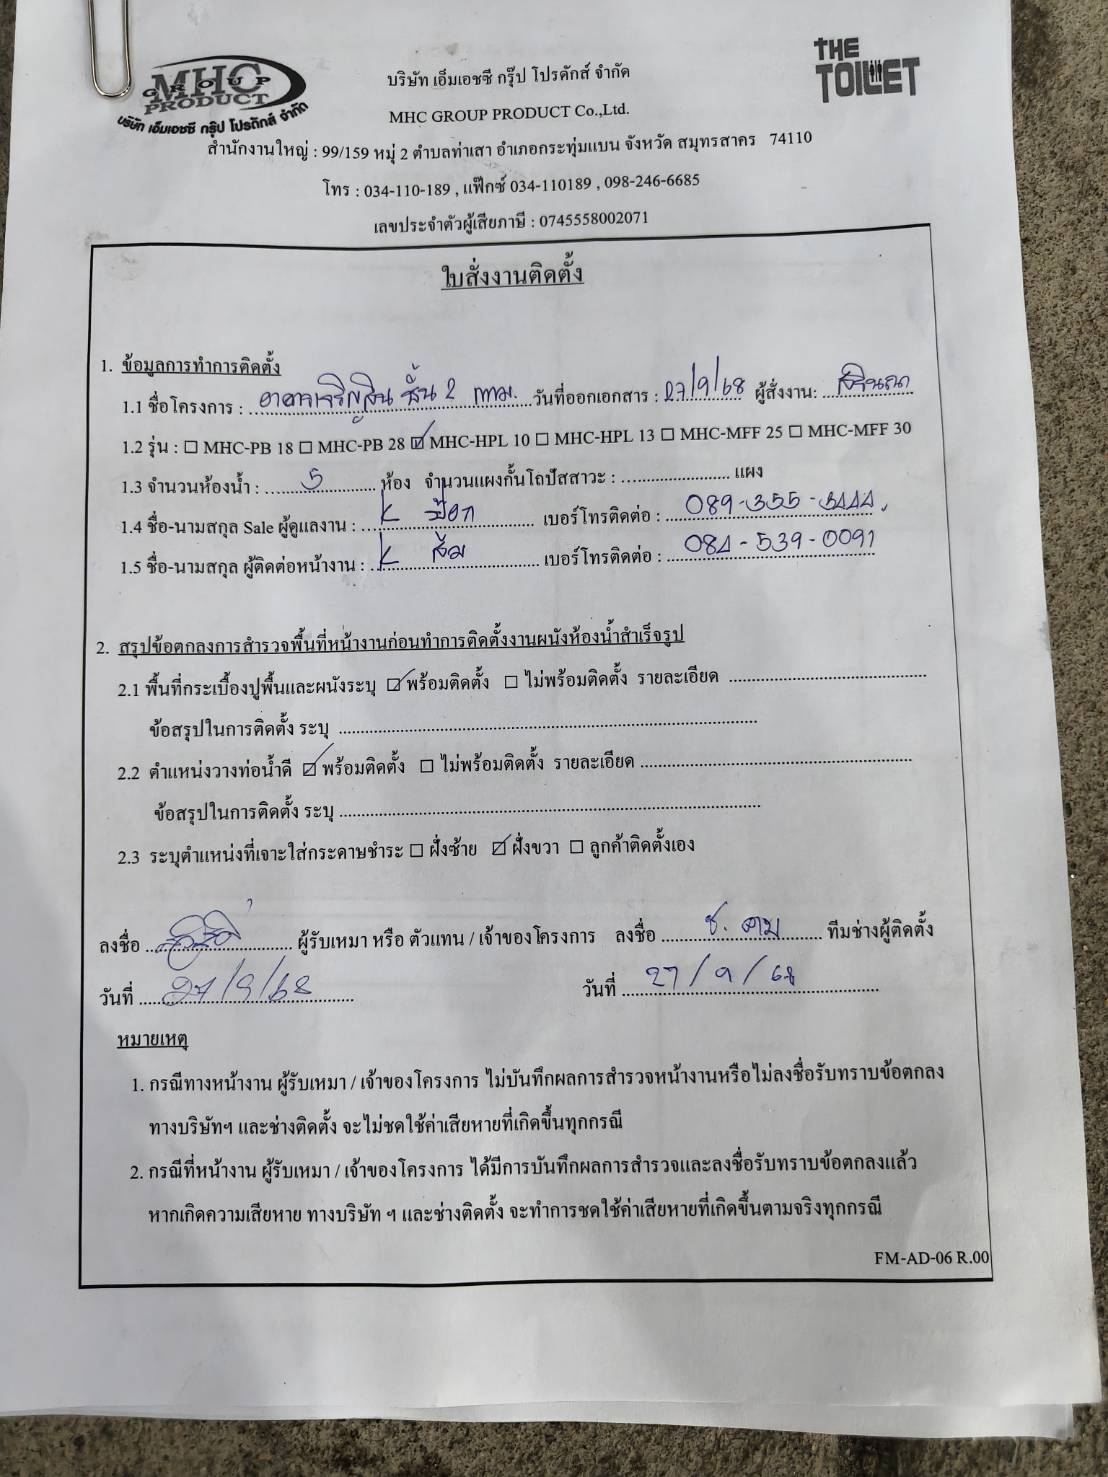 MHC
GROUP
PRODUCT
บริษัท เอ็มเอชซี กรุ๊ป โปรดักส์ จำกัด
THE
TOILET
บริษัท เอ็มเอชซี กรุ๊ป โปรดักส์ จำกัด
MHC GROUP PRODUCT Co.,Ltd.
สำนักงานใหญ่ : 99/159 หมู่ 2 ตำบลท่าเสา อำเภอกระทุ่มแบน จังหวัด สมุทรสาคร 74110
โทร : 034-110-189 , แฟ็กซ์ 034-110189 , 098-246-6685
เลขประจำตัวผู้เสียภาษี : 0745558002071
ใบสั่งงานติดตั้ง
1. ข้อมูลการทำการติดตั้ง
1.1 ชื่อโครงการ : อาคารเจริญสิน ชั้น 2 กทม. วันที่ออกเอกสาร : 27/9/68 ผู้สั่งงาน:
1.2 รุ่น : ☐ MHC-PB 18 ☐ MHC-PB 28 ☑ MHC-HPL 10 ☐ MHC-HPL 13 ☐ MHC-MFF 25 ☐ MHC-MFF 30
1.3 จำนวนห้องน้ำ : 5 ห้อง จำนวนแผงกั้นโถปัสสาวะ : ........ แผง
1.4 ชื่อ-นามสกุล Sale ผู้ดูแลงาน : K ป๊อก เบอร์โทรติดต่อ : 089-355-5444
1.5 ชื่อ-นามสกุล ผู้ติดต่อหน้างาน : K ส้ม เบอร์โทรติดต่อ : 084-539-0091
2. สรุปข้อตกลงการสำรวจพื้นที่หน้างานก่อนทำการติดตั้งงานผนังห้องน้ำสำเร็จรูป
2.1 พื้นที่กระเบื้องปูพื้นและผนังระบุ ☑ พร้อมติดตั้ง ☐ ไม่พร้อมติดตั้ง รายละเอียด ........
ข้อสรุปในการติดตั้ง ระบุ ........
2.2 ตำแหน่งวางท่อน้ำดี ☑ พร้อมติดตั้ง ☐ ไม่พร้อมติดตั้ง รายละเอียด ........
ข้อสรุปในการติดตั้ง ระบุ ........
2.3 ระบุตำแหน่งที่เจาะใส่กระดาษชำระ ☐ ฝั่งซ้าย ☑ ฝั่งขวา ☐ ลูกค้าติดตั้งเอง
ลงชื่อ ........ ผู้รับเหมา หรือ ตัวแทน / เจ้าของโครงการ ลงชื่อ ช. คม ทีมช่างผู้ติดตั้ง
วันที่ 27/9/68 วันที่ 27/9/68
หมายเหตุ
1. กรณีทางหน้างาน ผู้รับเหมา / เจ้าของโครงการ ไม่บันทึกผลการสำรวจหน้างานหรือไม่ลงชื่อรับทราบข้อตกลง
ทางบริษัทฯ และช่างติดตั้ง จะไม่ชดใช้ค่าเสียหายที่เกิดขึ้นทุกกรณี
2. กรณีที่หน้างาน ผู้รับเหมา / เจ้าของโครงการ ได้มีการบันทึกผลการสำรวจและลงชื่อรับทราบข้อตกลงแล้ว
หากเกิดความเสียหาย ทางบริษัท ฯ และช่างติดตั้ง จะทำการชดใช้ค่าเสียหายที่เกิดขึ้นตามจริงทุกกรณี
FM-AD-06 R.00